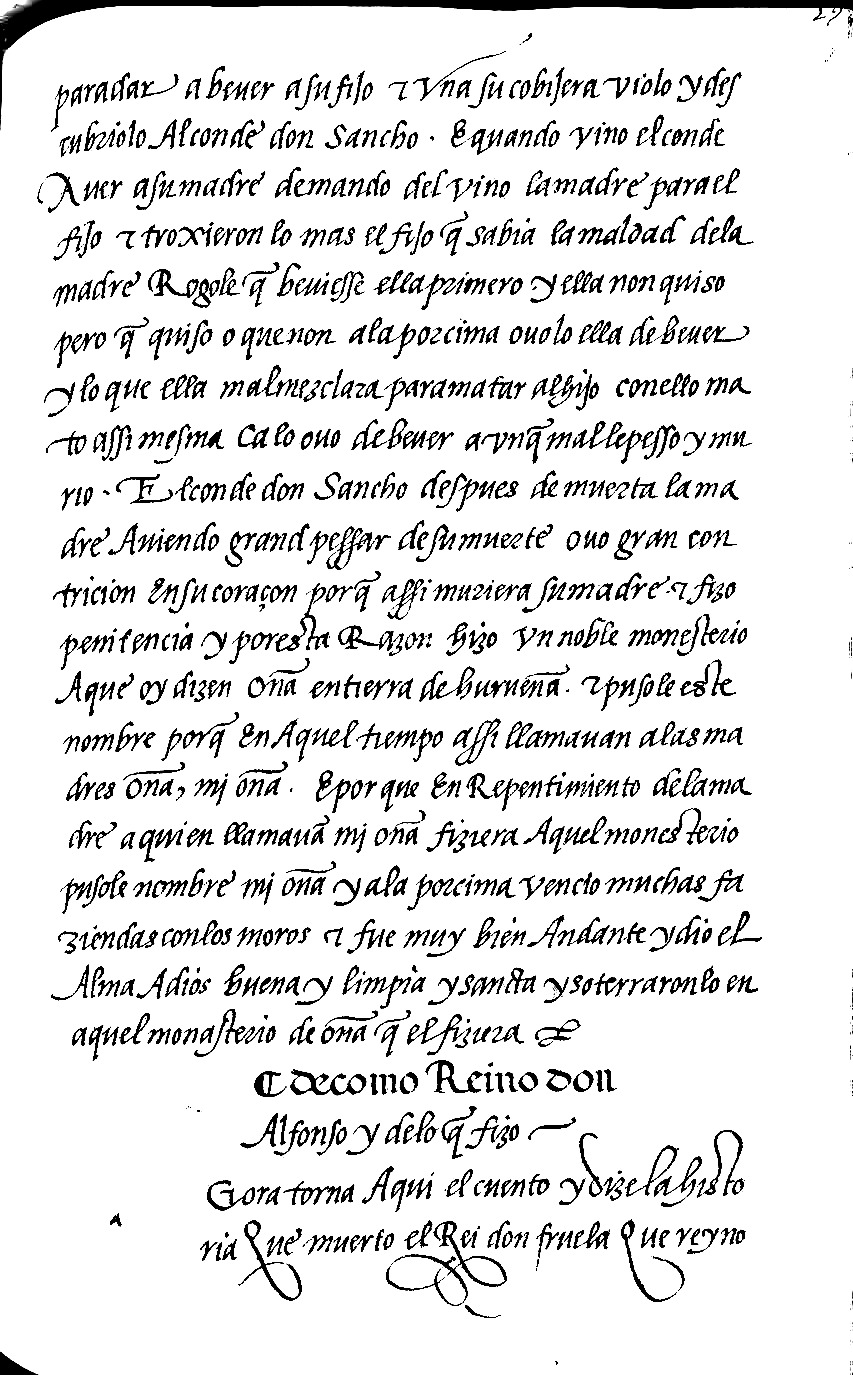 29
para dar a bever a su fijo τ Vna su cobijera violo y des
cubriolo Al conde don Sancho · E quando vino el conde
A ver a su madre demando del vino la madre para el
fijo τ troxieron lo mas el fijo q̃ sabia la maldad de la
madre Rogole q̃ beviesse ella primero y ella non quiso
pero q̃ quiso o que non a la porcima ovo lo ella de bever
y lo que ella mal mezclara para matar al hijo con ello ma
to assi mesma Ca lo ovo de bever a vnq̃ mal le pesso y mu
rio · El conde don Sancho despues de muerta la ma
dre Aviendo grand pessar de su muerte ovo gran con
tricion En su coraçon porq̃ assi muriera su madre τ fizo
penitencia y por esta Razon hizo Vn noble monesterio
A que oy dizen oña en tierra de burueña · τ pusole este
nombre porq̃ En Aquel tiempo assi llamavan a las ma
dres oña, mj oña · E por que En Repentimiento de la ma
dre a quien llamavã mj oña fiziera Aquel monesterio
pusole nombre mj oña y a la porcima vencio muchas fa
ziendas con los moros τ fue muy bien Andante y dio el
Alma A dios buena y limpia y sancta y soterraron lo en
aquel monasterio de oña q̃ el fiziera
¶ De como Reino don
Alfonso y de lo q̃ fizo
Gora torna Aqui el cuento y dize la histo
ria Que muerto el Rei don fruela Que reyno